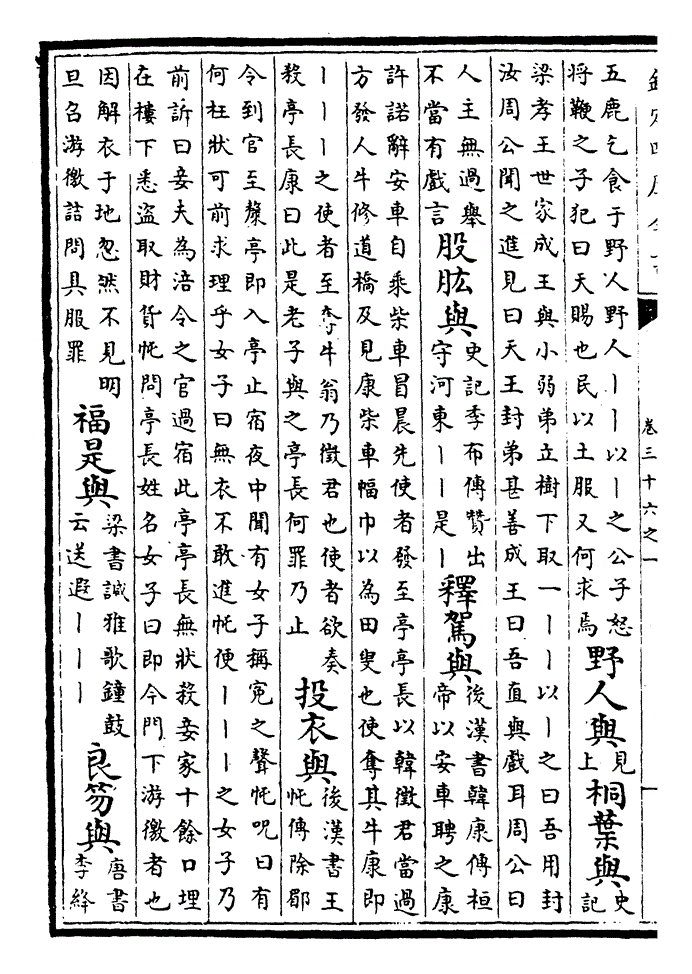 卷三十六之一
五鹿乞食于野人野人丨丨以丨之公子怒
將鞭之子犯曰天賜也民以土服又何求焉
野人與
見
上
桐葉與
史
記
梁孝王世家成王與小弱弟立樹下取一丨丨以丨之曰吾用封
汝周公聞之進見曰天王封弟甚善成王曰吾直與戲耳周公曰
人主無過舉
不當有戲言
股肱與
史記季布傳贊出
守河東丨丨是丨
釋駕與
後漢書韓康傳桓
帝以安車聘之康
許諾辭安車自乘柴車冒晨先使者發至亭亭長以韓徵君當過
方發人牛修道橋及見康柴車幅巾以為田叟也使奪其牛康即
丨丨丨之使者至奪牛翁乃徵君也使者欲奏
殺亭長康曰此是老子與之亭長何罪乃止
投衣與
後漢書王
忳傳除郿
令到官至斄亭即入亭止宿夜中聞有女子稱寃之聲忳呪曰有
何枉狀可前求理乎女子曰無衣不敢進忳便丨丨丨之女子乃
前訴曰妾夫為涪令之官過宿此亭亭長無狀殺妾家十餘口埋
在樓下悉盜取財貨忳問亭長姓名女子曰即今門下游徼者也
因解衣于地忽然不見明
旦召游徼詰問具服罪
福是與
梁書諴雅歌鐘鼓
云送遐丨丨丨
良笏與
唐書
李絳